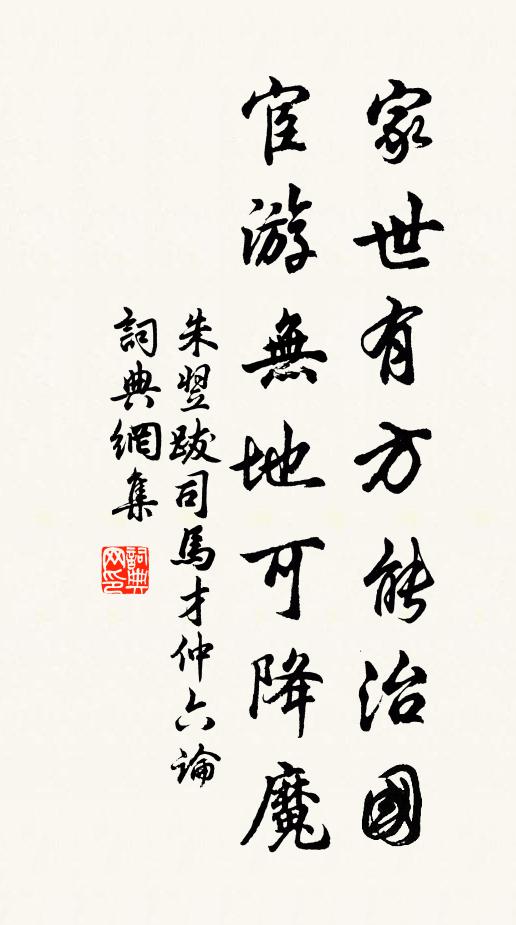 家世有方能治國
宦游無地可降魔
朱翌跋司馬才仲六論
詞典網集
詞典网印